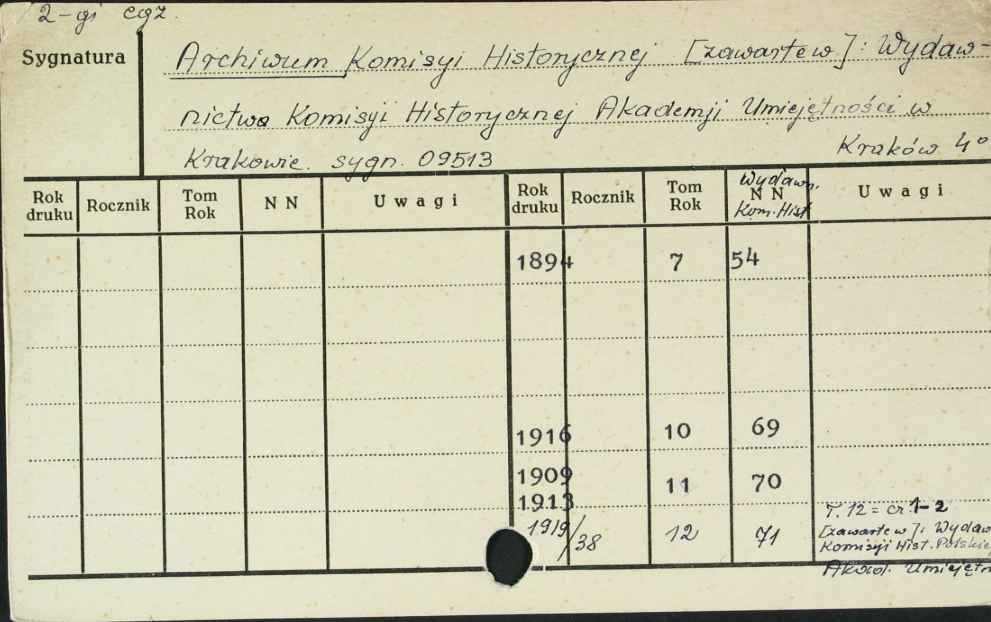 2-gi egz.
Sygnatura
Archiwum Komisyi Historycznej [zawarte w]: Wydaw-
nictwa Komisyi Historycznej Akademji Umiejętności w
Krakowie. sygn. 09513 Kraków 4°
Rok druku Rocznik Tom Rok NN Uwagi Rok druku Rocznik Tom Rok Wydawn. NN Kom. Hist. Uwagi
1894 7 54
1916 10 69
1909
1913 11 70
1919/38 12 71 T. 12 = cz. 1-2
[zawarte w]: Wydaw
Komisyi Hist. Polskie
Akad. Umiejętn